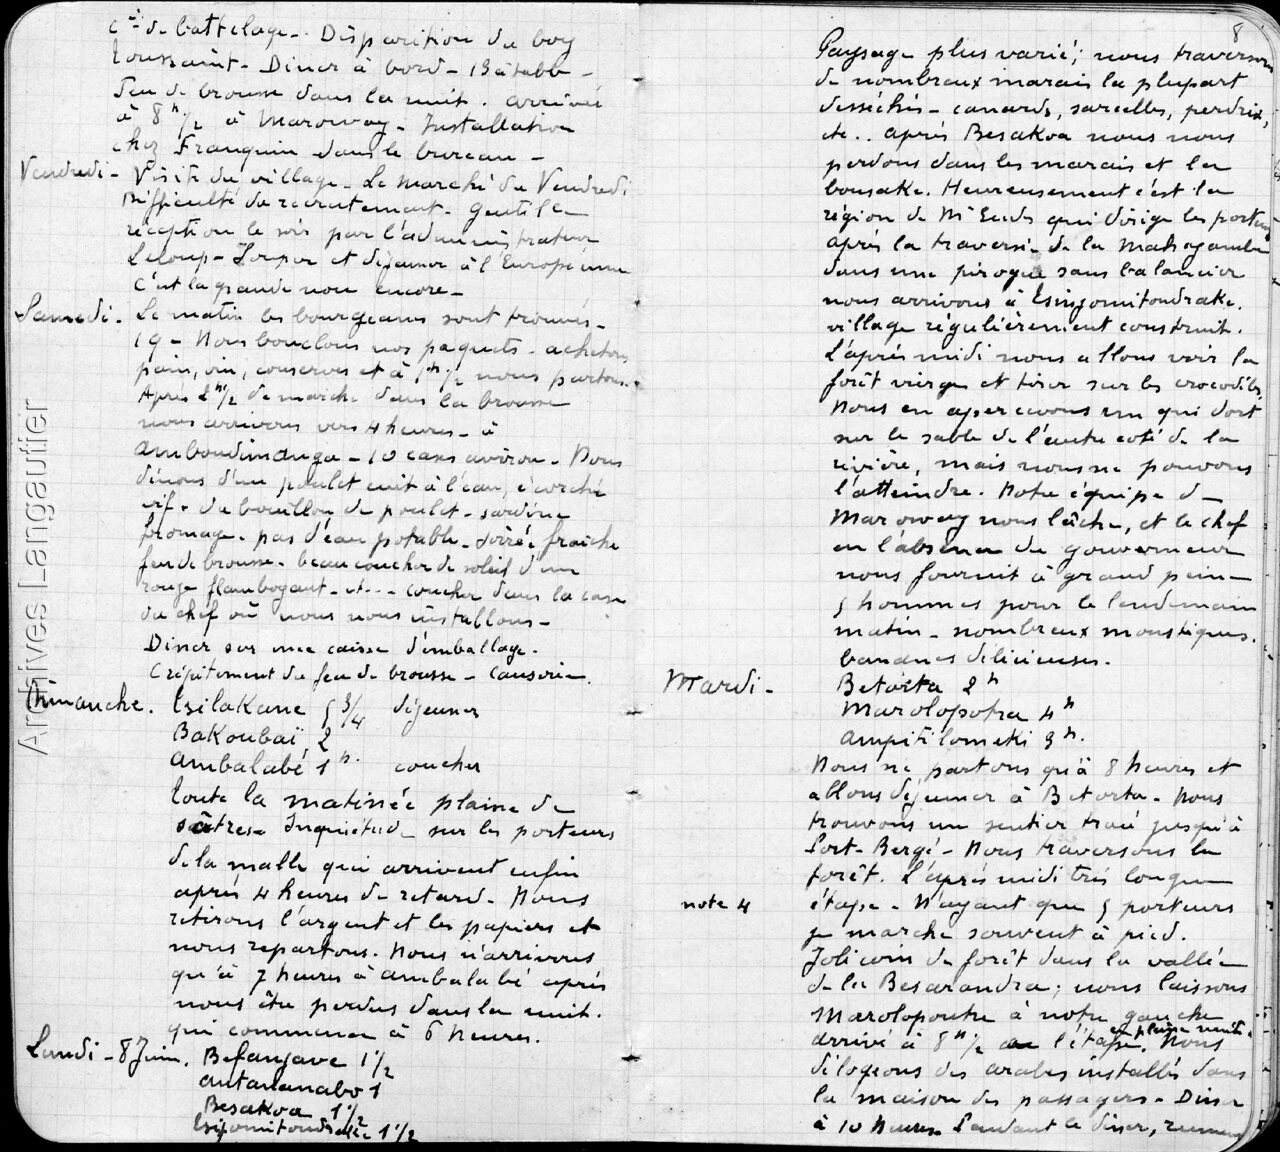 Cie de battelage - Disparition du boy
Toussaint - Diner à bord - 13 à table -
Feu de brousse dans la nuit. arrivée
à 8 h 1/2 à Marovoay - Installation
chez Franquin dans le bureau -
Vendredi - Visite du village - Le Marché du Vendredi
Difficulté du recrutement - gentille
réception le soir par l'administrateur
Leloup - Souper et déjeuner à l'Européenne
C'est la grande noce encore -
Samedi - Le matin les bourgeanes sont trouvés -
19 - Nous bouclons nos paquets - achetons
pain, vin, conserves et à 1h 1/2 nous partons.
Après 2h 1/2 de marche dans la brousse
nous arrivons vers 4 heures - à
Amboudimanga - 10 cases environ - Nous
dînons d'un poulet cuit à l'eau, écorché
vif - du bouillon de poulet - sardine
fromage - pas d'eau potable - soirée fraîche
feu de brousse - beau coucher de soleil d'un
rouge flamboyant - et --- coucher dans la case
du chef où nous nous installons -
Diner sur une caisse d'emballage.
Crépitement du feu de brousse - Causerie.
Dimanche. Tsilakane 5 3/4 déjeuner
Bakoubaï 2
Ambalabé 1 h. coucher
Toute la matinée plaine de
satres - Inquiétude sur les porteurs
de la malle qui arrivent enfin
après 4 heures de retard - Nous
retirons l'argent et les papiers et
nous repartons. Nous n'arrivons
qu'à 7 heures à Ambalabé après
nous être perdus dans la nuit.
qui commence à 6 heures.
Lundi - 8 Juin. Befanjave 1 1/2
Antananabo 1
Besakoa 1 1/2
1 1/2
8
Paysage plus varié; nous traversons
de nombreux marais la plupart
desséchés - canards, sarcelles, perdrix,
etc.. après Besakoa nous nous
perdons dans les marais et la
bousake. Heureusement c'est la
région de Mr qui dirige les porteurs
après la traversée de la Mahajamba
dans une pirogue sans balancier
nous arrivons à Esinjomitondrake.
village régulièrement construit.
L'après midi nous allons voir la
forêt vierge et tirer sur les crocodiles,
Nous en apercevons un qui dort
sur le sable de l'autre coté de la
rivière, mais nous ne pouvons
l'atteindre. Notre équipe de
Marovoay nous lâche, et le chef
en l'absence du gouverneur
nous fournit à grand peine
5 hommes pour le lendemain
matin - nombreux moustiques.
bananes délicieuses.
Mardi - Betorta 2 h
Marolopotra 4 h
Ampitilomeki 3 h.
Nous ne partons qu'à 8 heures et
allons déjeuner à Betorta - Nous
trouvons un sentier tracé jusqu'à
Port-Bergé - Nous traversons la
forêt. L'après midi très longue
note 4 étape - N'ayant que 5 porteurs
je marche souvent à pied.
Joli coin de forêt dans la vallée
de la Besarandra; nous laissons
Marolopoutre à notre gauche
en pleine nuit.
arrivé à 8 h 1/2 à l'étape. Nous
délogeons des arabes installés dans
la maison des passagers - Diner
à 10 heures. Pendant le diner,
Archives Langautier